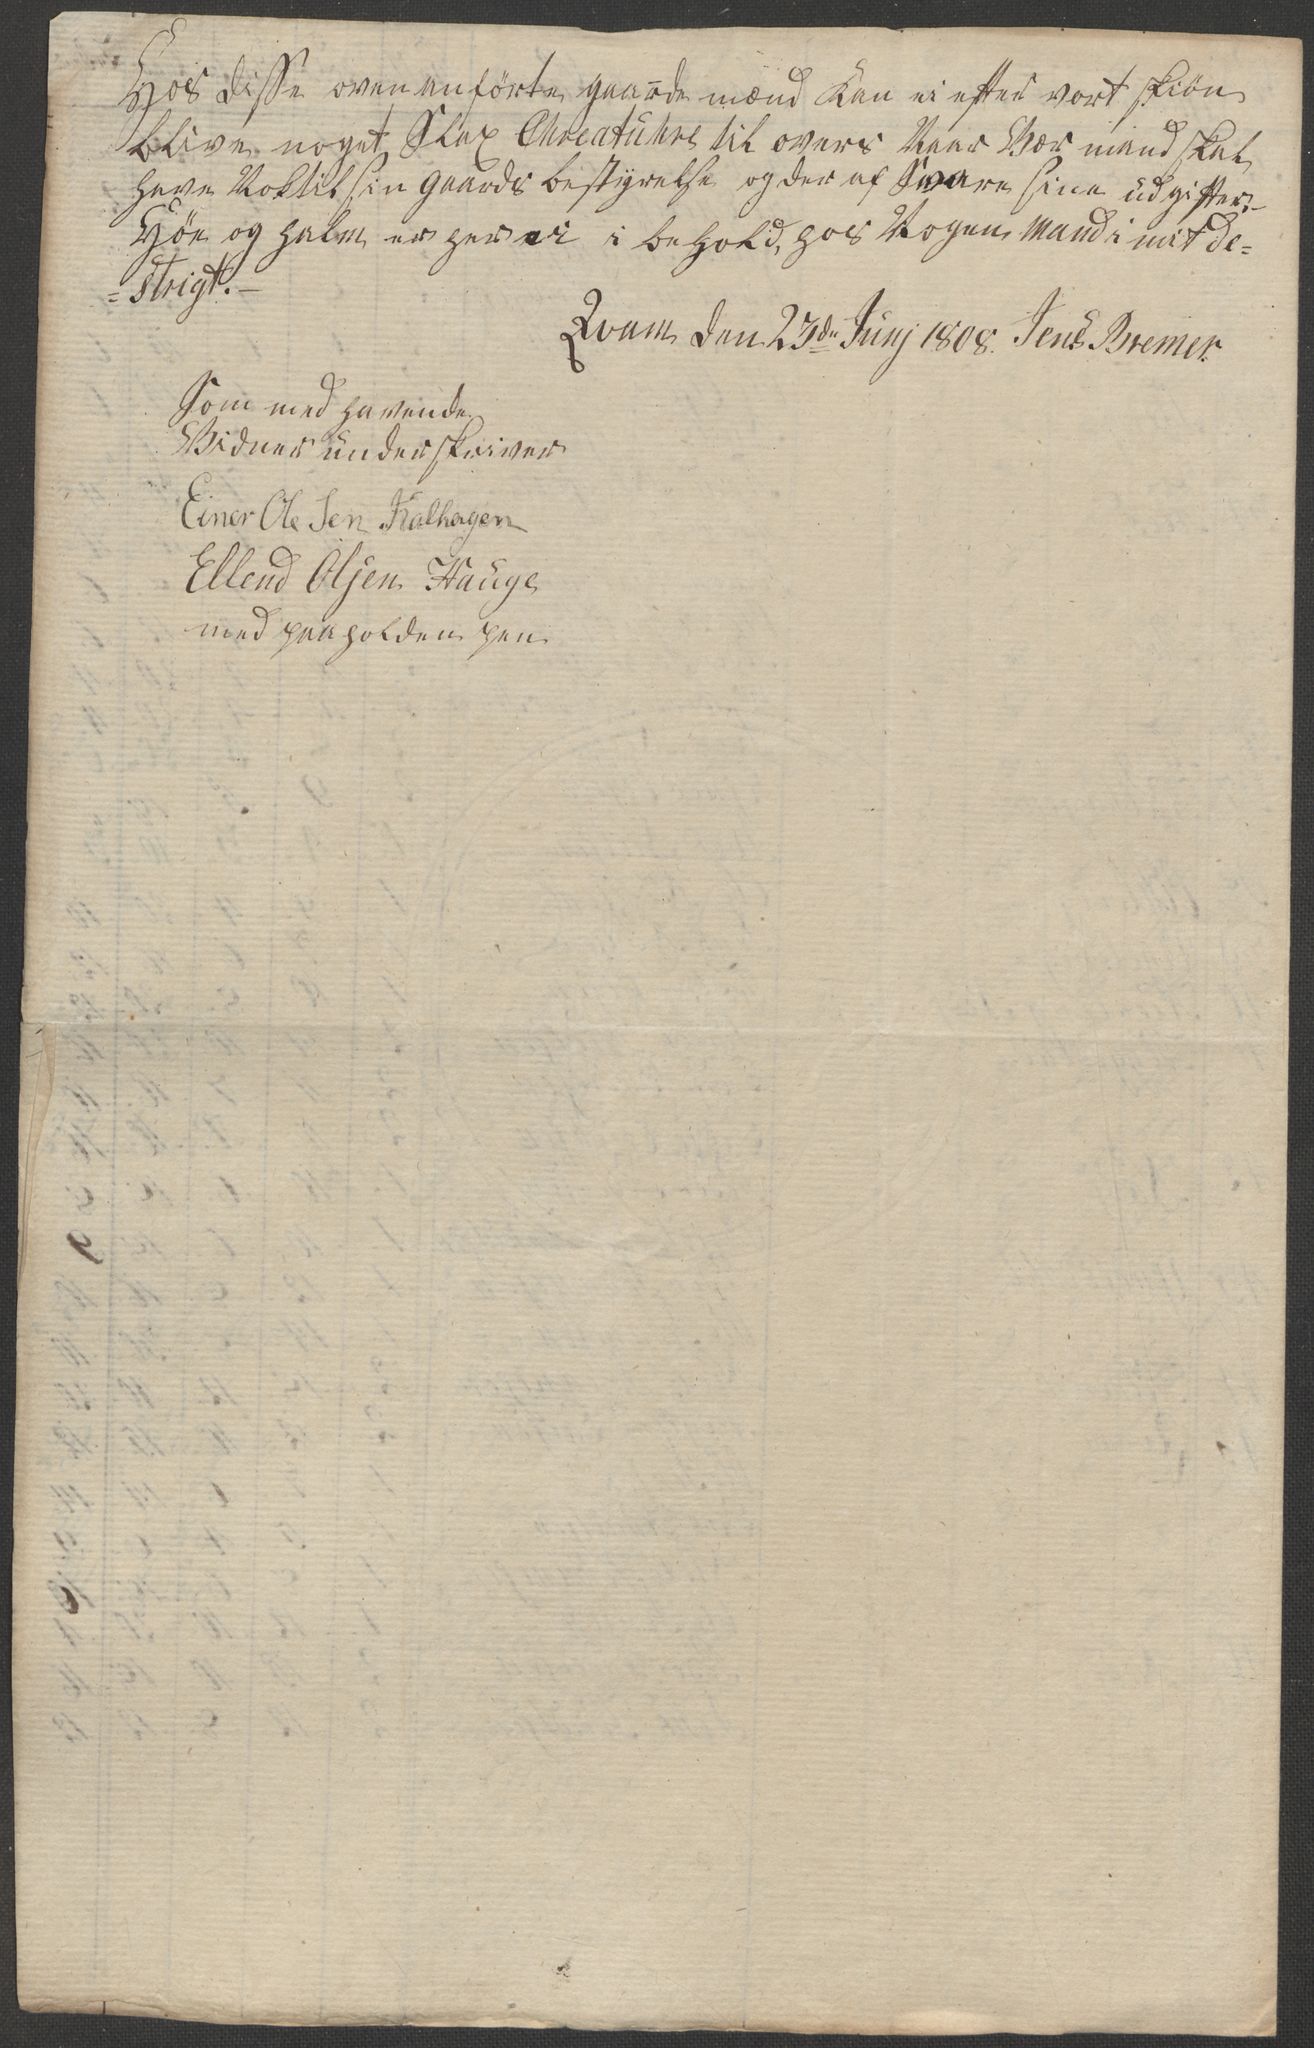 Hos disse ovenanførte gaardemænd Kan ei efter vort skiøn
blive noget Slax Chreatuhre til overs Naar Vær mand skal
have Noktil sin gaards bestyrelse og der af Svare sine udgifter.-
Høe og halm er her ei i behold, hos Nogen Mand i mit de=
=strigt.-
Qvam den 23de Junj 1808. Jens Bremer.
Som med havende
Vidner underskriver
Einer Ole Sen Kalhagen
Ellend Olsen Hauge
med paaholden pen